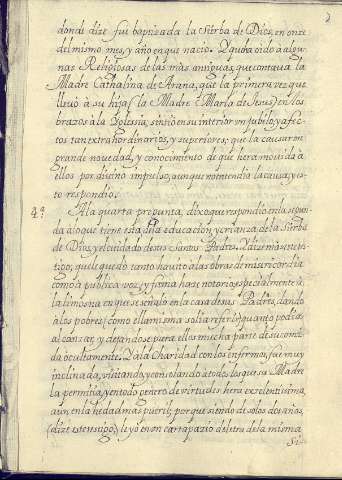 2
donde dize fue baptizada la Sierba de Dios, en onze
del mismo mes, y año en que nacio. Y q̃ uba oido à algu-
nas Religiosas de las mas antiguas, que contava la
Madre Cathalina de Arana, que la primera vez que
llevò à su hija (la Madre Maria de Jesus) en los
brazos à la Yglesia, sintio en su interior un jubilo, y afec-
tos tan extrahordinarios, y superiores; que la causaron
grande novedad, y conocimiento de que hera movida à
ellos por divino impulso, aunque no entendio la causa, y es-
to respondio.
4ª A la quarta pregunta, dixo que respondio en la segun-
da lo que tiene esta dha educacion, y crianza de la Sierba
de Dios, y el cuidado de sus Santos Padres. Y dize más este tes-
tigo, que le quedo tanto havito a las obras de misericordia
como à publica voz, y fama hase notorio, especialmente à
la limosna, en que se señalo en la casa de sus Padres, dando
à los pobres (como ella misma solia referir) quanto podia
alcanzar, y dejandose para ellos mucha parte de su comi-
da ocultamente. Y à la Charidad con los enfermos, fue muy
inclinada, visitando, y consolando à todos los que su Madre
la permitia, y en todo genero de virtudes hera exselentissima,
aun en la hedad mas pueril; porque siendo de solos dos años,
(dize este testigo) leyò en un cartapazio de letra de la misma
Si-